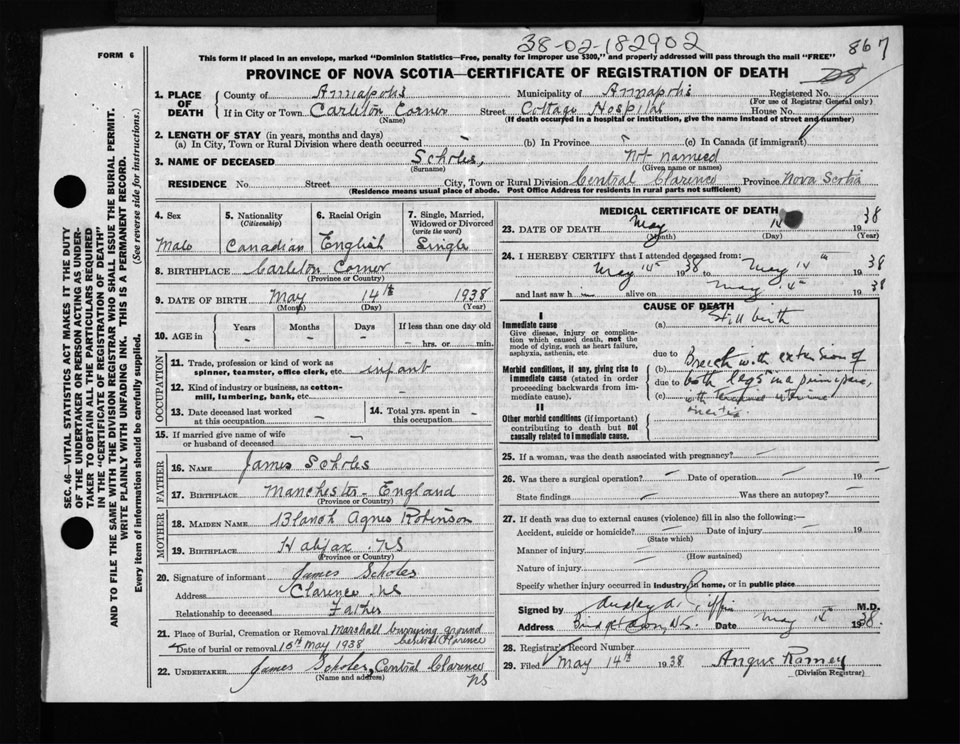 38-02-182902
867
FORM 6
This form if placed in an envelope, marked "Dominion Statistics—Free, penalty for improper use $300," and properly addressed will pass through the mail "FREE"
PROVINCE OF NOVA SCOTIA—CERTIFICATE OF REGISTRATION OF DEATH
28
1. PLACE OF DEATH County of Annapolis Municipality of Annapolis Registered No.
(For use of Registrar General only)
If in City or Town Carleton Corner Street Cottage Hospital House No.
(Name) (If death occurred in a hospital or institution, give the name instead of street and number)
2. LENGTH OF STAY (in years, months and days)
(a) In City, Town or Rural Division where death occurred - (b) In Province - (c) In Canada (if immigrant)
3. NAME OF DECEASED Scholes, Not named
(Surname) (Given name or names)
RESIDENCE No Street City, Town or Rural Division Central Clarence Province Nova Scotia
(Residence means usual place of abode. Post Office Address for residents in rural parts not sufficient)
4. Sex Male
5. Nationality (Citizenship) Canadian
6. Racial Origin English
7. Single, Married, Widowed or Divorced (write the word) Single
8. BIRTHPLACE Carleton Corner
(Province or Country)
9. DATE OF BIRTH May 14th 1938
(Month) (Day) (Year)
10. AGE in Years - Months - Days - If less than one day old - hrs. or min.
OCCUPATION
11. Trade, profession or kind of work as spinner, teamster, office clerk, etc. infant
12. Kind of industry or business, as cotton-mill, lumbering, bank, etc. -
13. Date deceased last worked at this occupation -
14. Total yrs. spent in this occupation -
15. If married give name of wife or husband of deceased -
FATHER
16. NAME James Scholes
17. BIRTHPLACE Manchester - England
(Province or Country)
MOTHER
18. MAIDEN NAME Blanch Agnes Robinson
19. BIRTHPLACE Halifax NS
(Province or Country)
20. Signature of informant James Scholes
Address Clarence NS
Relationship to deceased Father
21. Place of Burial, Cremation or Removal Marshall burying ground Central Clarence
Date of burial or removal 15th May 1938
22. UNDERTAKER James Scholes, Central Clarence NS
(Name and address)
MEDICAL CERTIFICATE OF DEATH
23. DATE OF DEATH May 14 1938
(Month) (Day) (Year)
24. I HEREBY CERTIFY that I attended deceased from:
May 14th 1938 to May 14th 1938
and last saw him alive on May 14th 1938
CAUSE OF DEATH
I
Immediate cause
Give disease, injury or complication which caused death, not the mode of dying, such as heart failure, asphyxia, asthenia, etc
(a) Still birth
due to
Morbid conditions, if any, giving rise to immediate cause (stated in order proceeding backwards from immediate cause).
(b) Breech with extension of
due to both legs in a primipara,
(c) with uterine inertia
II
Other morbid conditions (if important) contributing to death but not causally related to immediate cause.
25. If a woman, was the death associated with pregnancy? -
26. Was there a surgical operation? - Date of operation - 19
State findings - Was there an autopsy? -
27. If death was due to external causes (violence) fill in also the following:—
Accident, suicide or homicide? - Date of injury - 19
(State which)
Manner of injury -
(How sustained)
Nature of injury -
Specify whether injury occurred in industry, in home, or in public place
Signed by M.D.
Address Bridgetown, N.S. Date May 14 1938.
28. Registrar's Record Number
29. Filed May 14th 1938 Angus Ramey
(Division Registrar)
SEC. 46—VITAL STATISTICS ACT MAKES IT THE DUTY
OF THE UNDERTAKER OR PERSON ACTING AS UNDER-
TAKER TO OBTAIN ALL THE PARTICULARS REQUIRED
IN THE "CERTIFICATE OF REGISTRATION OF DEATH"
AND TO FILE THE SAME WITH THE DIVISION REGISTRAR WHO SHALL ISSUE THE BURIAL PERMIT.
WRITE PLAINLY WITH UNFADING INK. THIS IS A PERMANENT RECORD.
Every item of information should be carefully supplied. (See reverse side for instructions.)